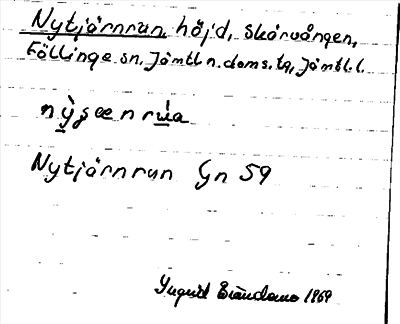 Nytjärnrun, höjd, Skärvången,
Föllinge sn, Jämtl. n. doms. tg, Jämtl. l.
nỳʂænrúa
Nytjärnrun Gn 59
Ingrid 1969